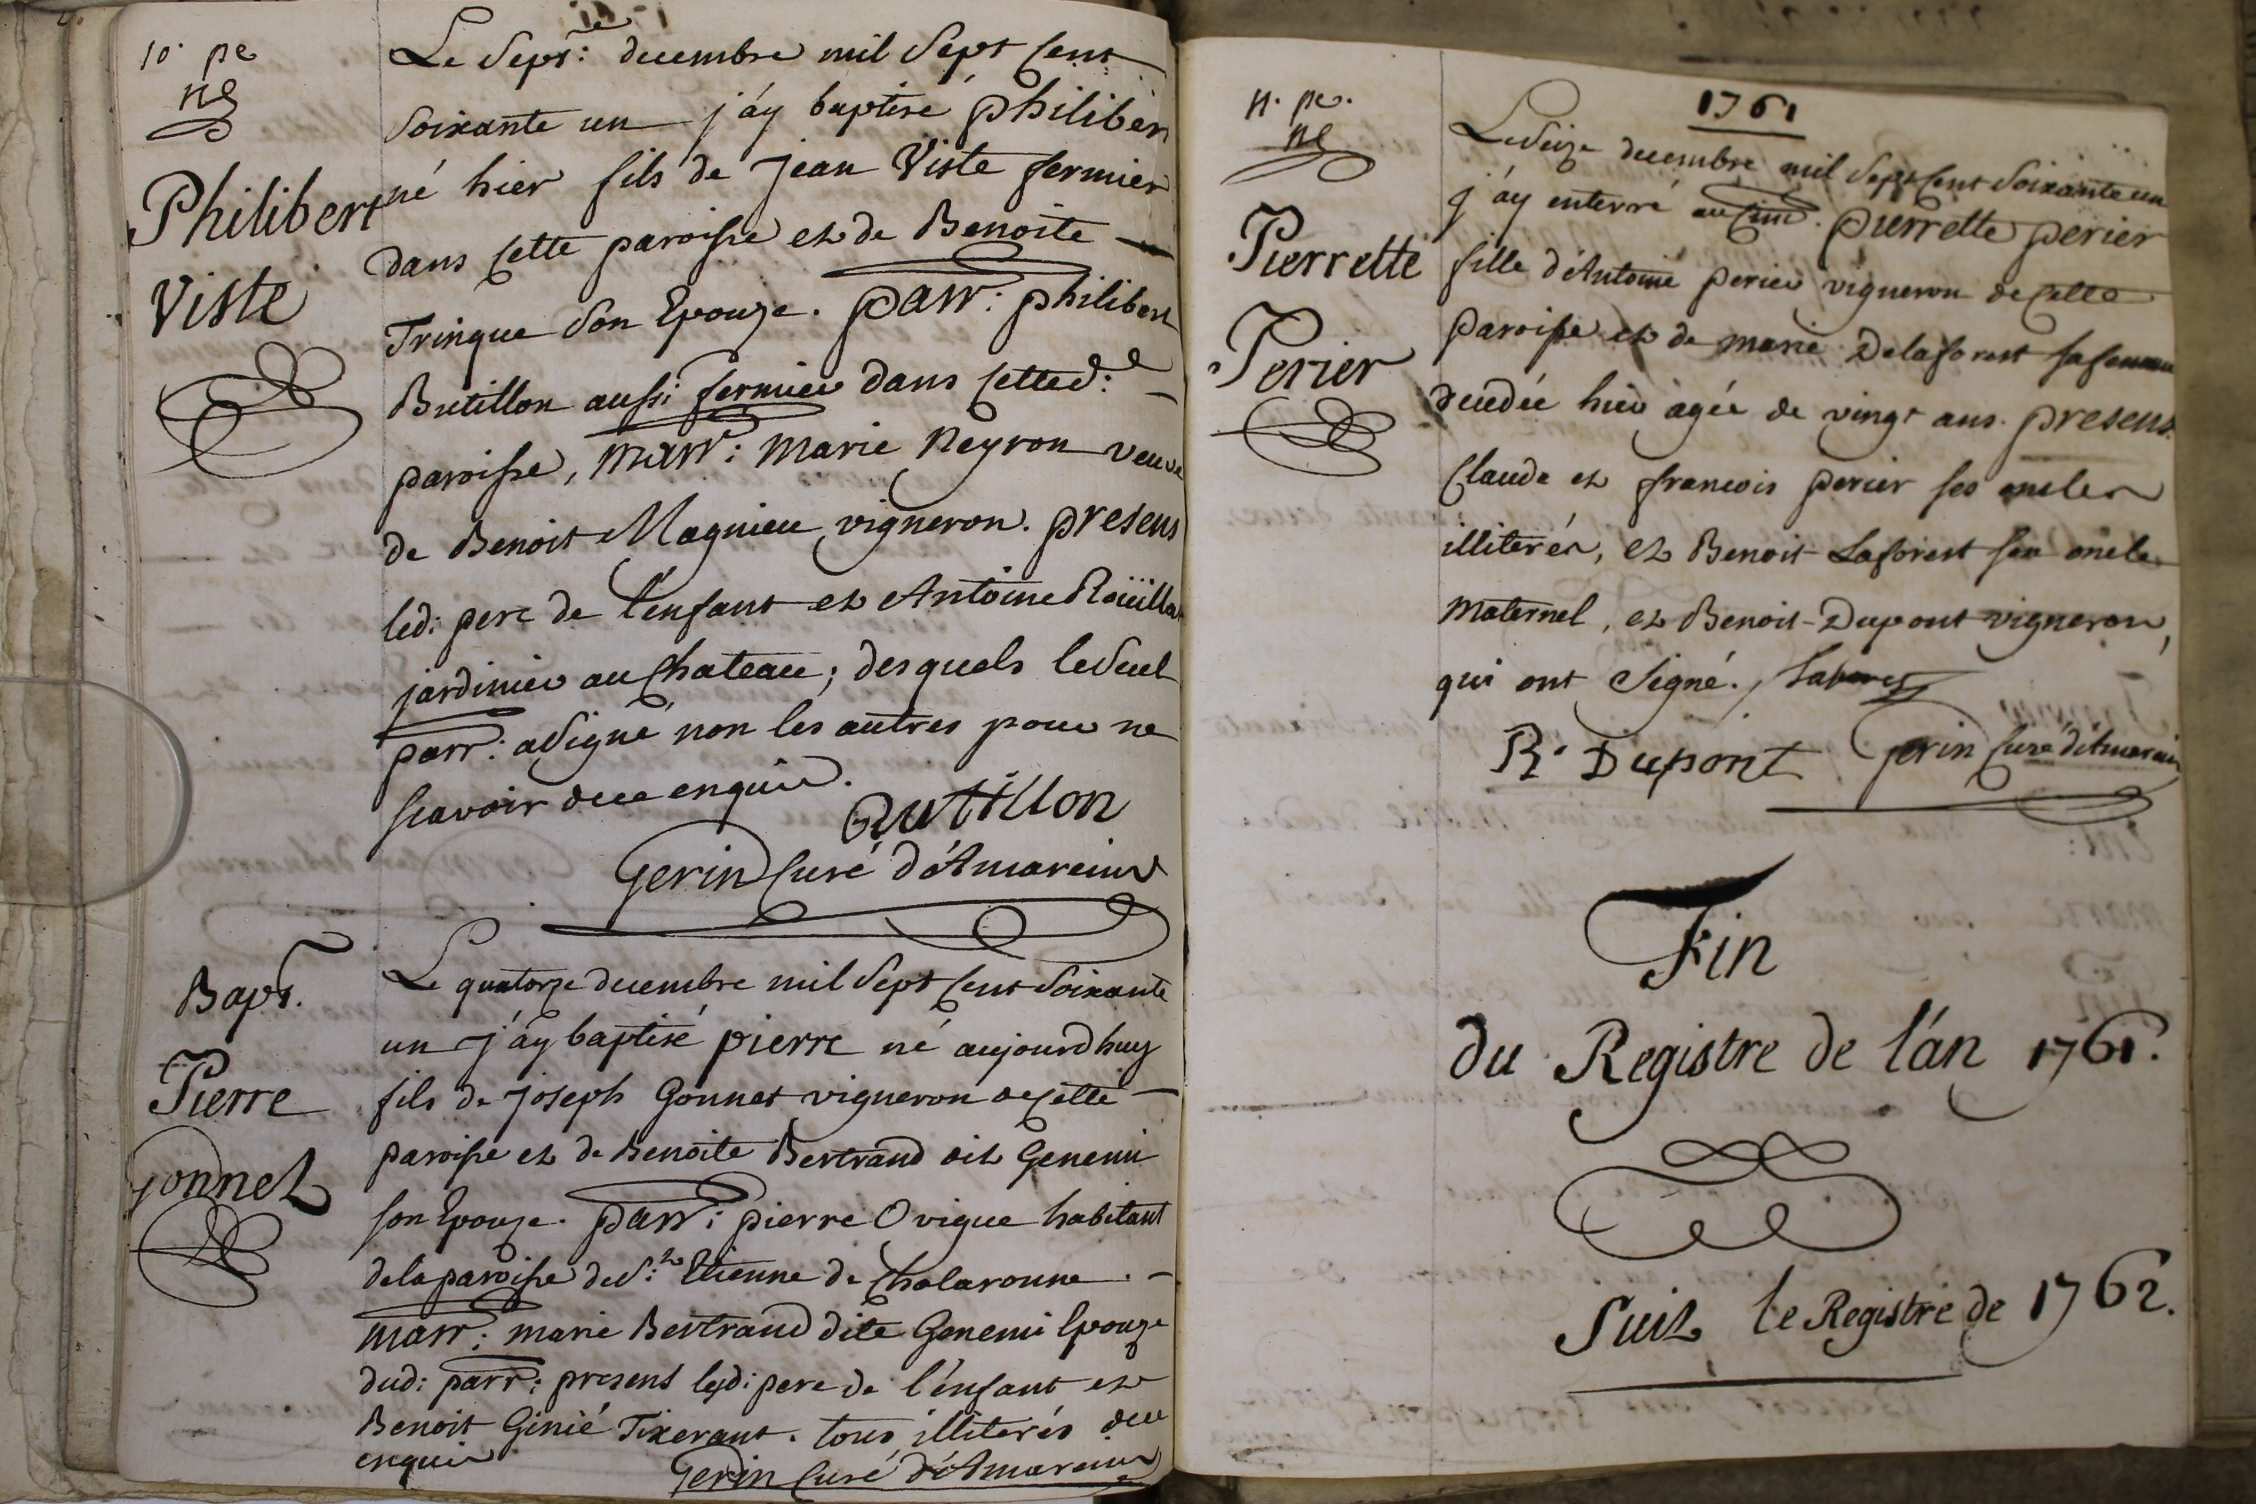 10. pe
Philibert
Viste
Le Sept.e decembre mil Sept Cent
Soixante un j'ay baptisé philibert
né hier fils de Jean Viste fermier
dans Cette paroisse et de Benoite
Tringue Son Epouze. parr: philibert
Butillon aussi fermier dans Cetted:e
paroisse, marr: Marie Neyron veuve
de Benoit Magnien vigneron. presens
led: pere de l'enfant et Antoine Roüillat
jardinier au Chateau; desquels le Seul
parr: a Signé non les autres pour ne
scavoir de ce enquis.
Butillon
Gerin Curé d'Amareins
Bapt.
Pierre
Gonnet
Le quatorze decembre mil Sept Cent Soixante
un j'ay baptisé pierre né aujourdhuy
fils de joseph Gonnet vigneron de Cette
paroisse et de Benoite Bertrand dit Genemi
son Epouze. parr: pierre Ovigue habitant
de la paroisse de S:t Etienne de Chalaronne.
marr: marie Bertrand dite Genemi Epouze
dud: parr: presens led: pere de l'enfant et
Benoit Ginié Tixerant. tous illiterés de ce
enquis
Gerin Curé d'Amareins
11. pe.
Pierrette
Perier
1761
Le Seize decembre mil Sept Cent Soixante un
j'ay enterré au Cim. pierrette perier
fille d'Antoine perier vigneron de Cette
paroisse et de marie Delaforest sa femme
decedée hier agée de vingt ans. presens
Claude et francois perier ses oncles
illiterés, et Benoit Laforest son oncle
maternel, et Benoit Dupont vigneron,
qui ont Signé. Laforest
B. Dupont Gerin Curé d'Amareins
Fin
du Registre de l'an 1761.
Suit le Registre de 1762.